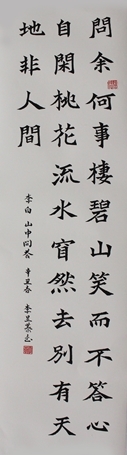 問余何事棲碧山笑而不答心
自閑桃花流水窅然去別有天
地非人間
李白 山中問答 辛丑